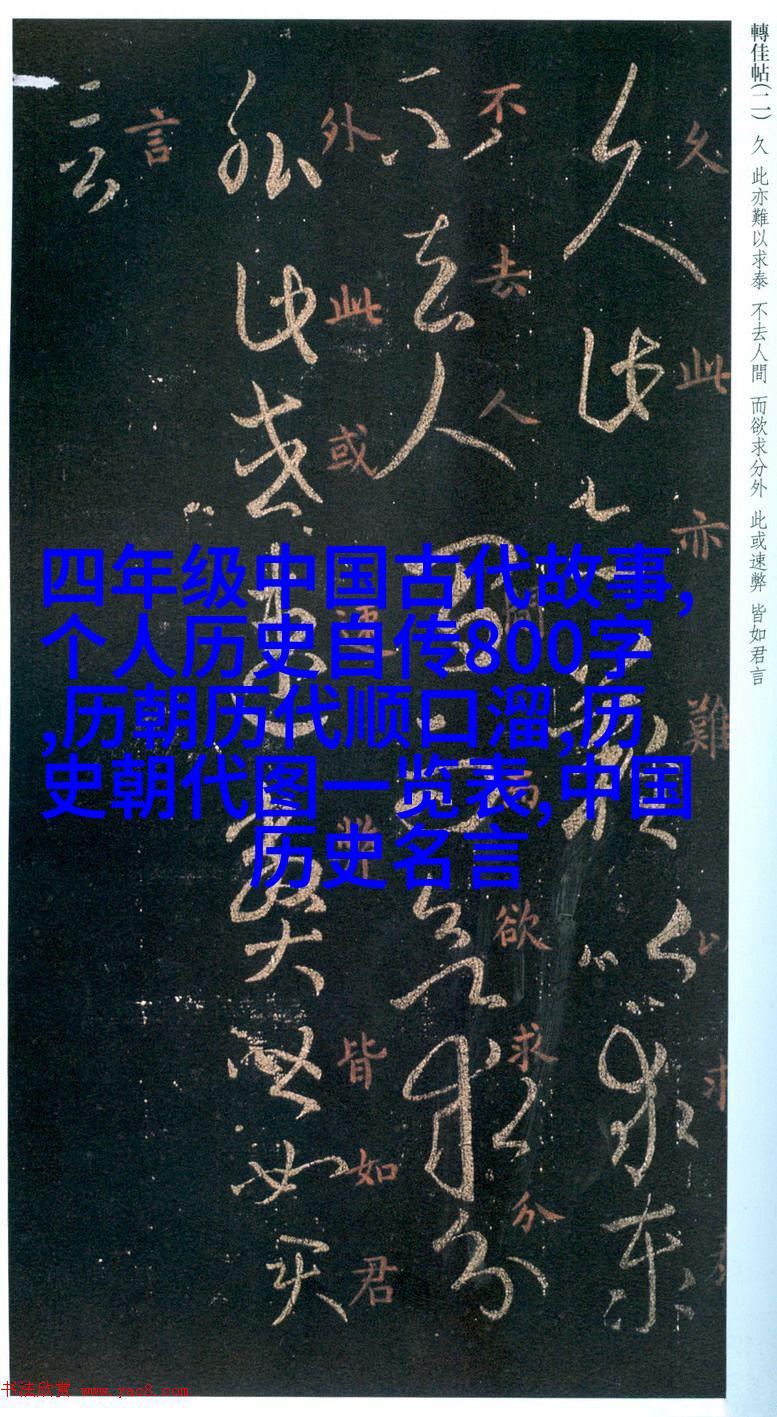 轉佳帖(二) 久 此亦難以求泰 不去人間 而欲求分外 此或速弊 皆如君言
久此亦難以求
不去人間而欲求分
外此或速弊皆如君
言
四年级中国古代故事,
个人历史自传800字
,历朝历代顺口溜,历
史朝代图一览表,中国
历史名言
书法欣赏 www.yac8.com